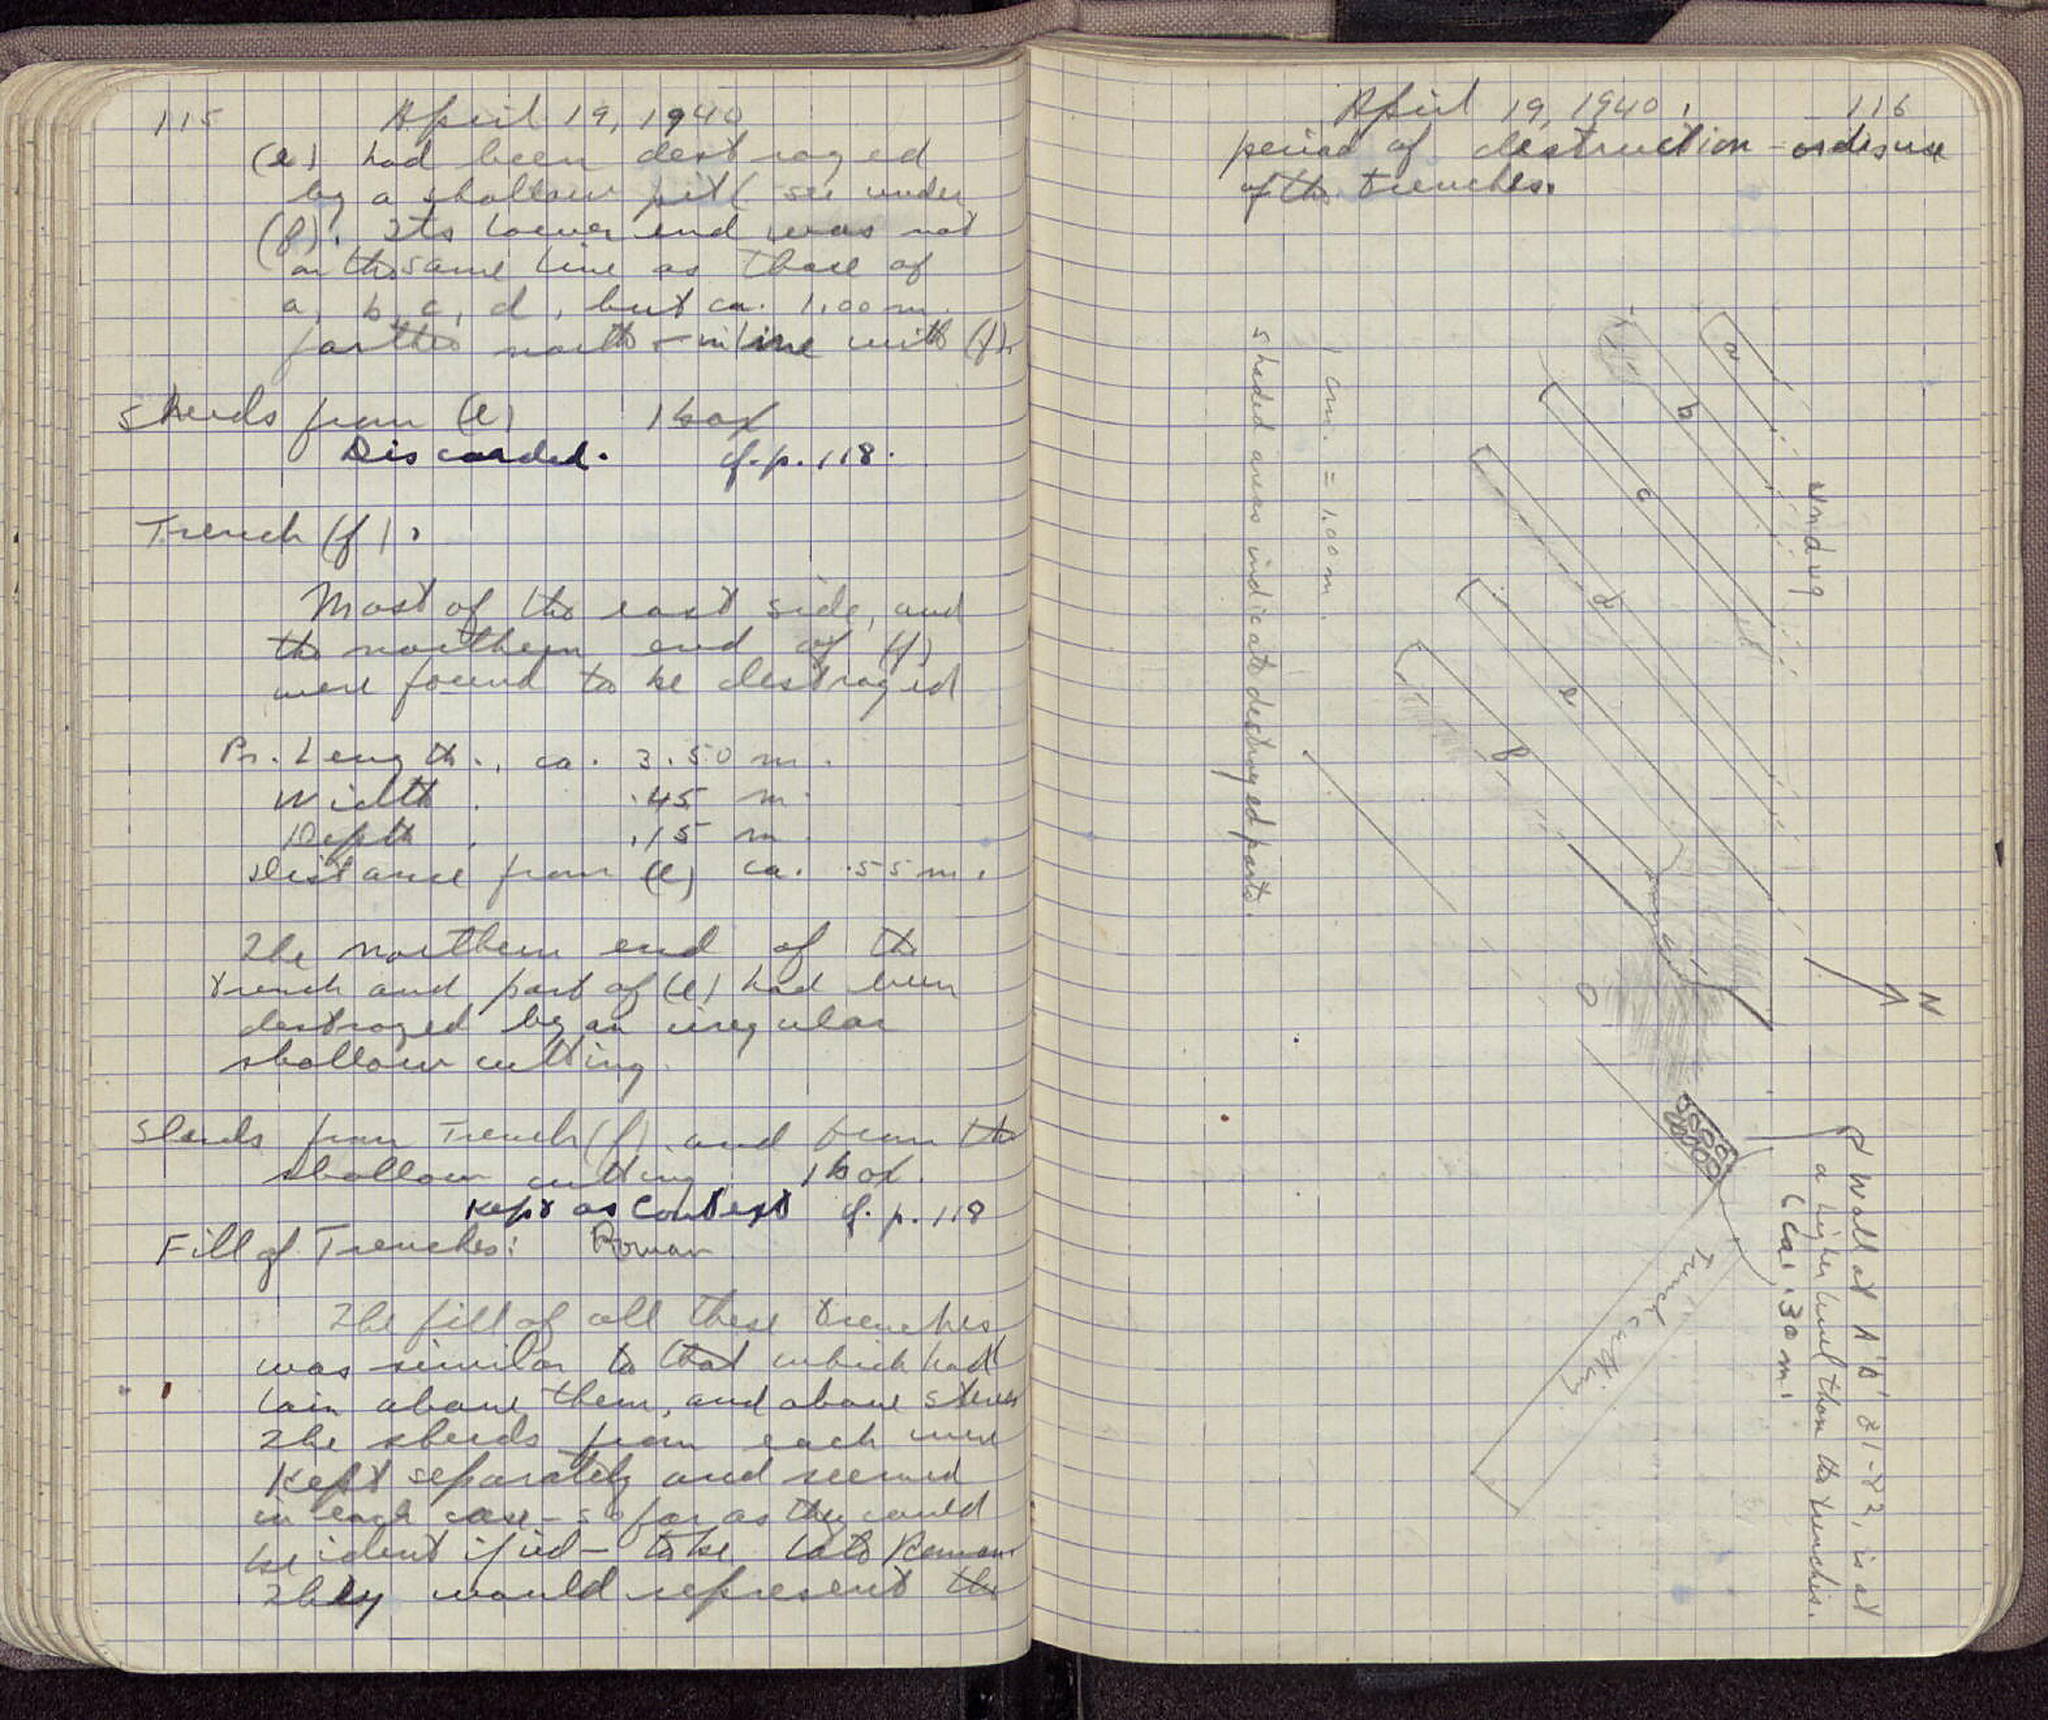 115 April 19, 1940
(e) had been destroyed
by a shallow pit (see under
(f). Its lower end was not
on the same line as those of
a, b, c, d, but ca. 1.00 m.
farther north - in line with (f).
Sherds from (e) 1 box
Discarded. cf. p. 118.
Trench (f).
Most of the east side, and
the northern end of (f)
were found to be destroyed
Pr. Length., ca. 3.50 m.
Width. .45 m.
Depth. .15 m.
Distance from (e) ca. .55 m.
The northern end of the
trench and part of (e) had been
destroyed by an irregular
shallow cutting.
Sherds from Trench (f) and from the
shallow cutting 1 box.
Kept as Context cf. p. 118
Fill of Trenches: Roman
The fill of all these trenches
was similar to that which had
lain above them, and above
The sherds from each were
kept separately and seemed
in each case - so far as they could
be identified - to be late Roman.
They would represent the
April 19, 1940. 116
period of destruction - or disuse
of the trenches.
a
b
c
d
e
f
Undug
1 cm. = 1.00 m.
shaded areas indicate destroyed parts.
N
Trench cutting
Wall at is at
a higher level than the trenches.
(ca. .30 m.